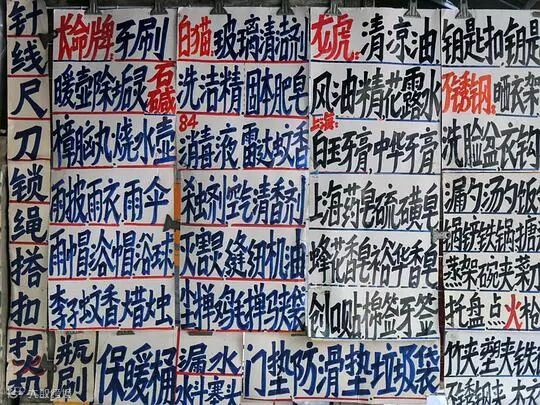 针
线
尺
刀
锁
绳
搭
扣
打
火
长命牌 牙刷
暖壶除垢灵 石碱
樟脑丸烧水壶
雨披雨衣雨伞
雨帽浴帽浴球
李字蚊香蜡烛
瓶刷
保暖桶
白猫 玻璃清洁剂
洗洁精 固体肥皂
84
消毒液 雷达蚊香
杀虫剂空气清香剂
灭害灵 缝纫机油
尘掸鸡毛掸 马夹袋
漏水
水斗塞头
龙虎 清凉油
风油精花露水
上海
白玉牙膏 中华牙膏
上海药皂硫磺皂
蜂花香皂裕华香皂
创口贴棉签牙签
门垫防滑垫垃圾袋
钥匙扣钥匙
不锈钢 晒衣架
洗脸盆衣钩
漏勺汤勺饭
锅铲铁锅
蒸架碗夹菜刀
托盘点火枪
竹夹塑夹铁
不锈钢夹